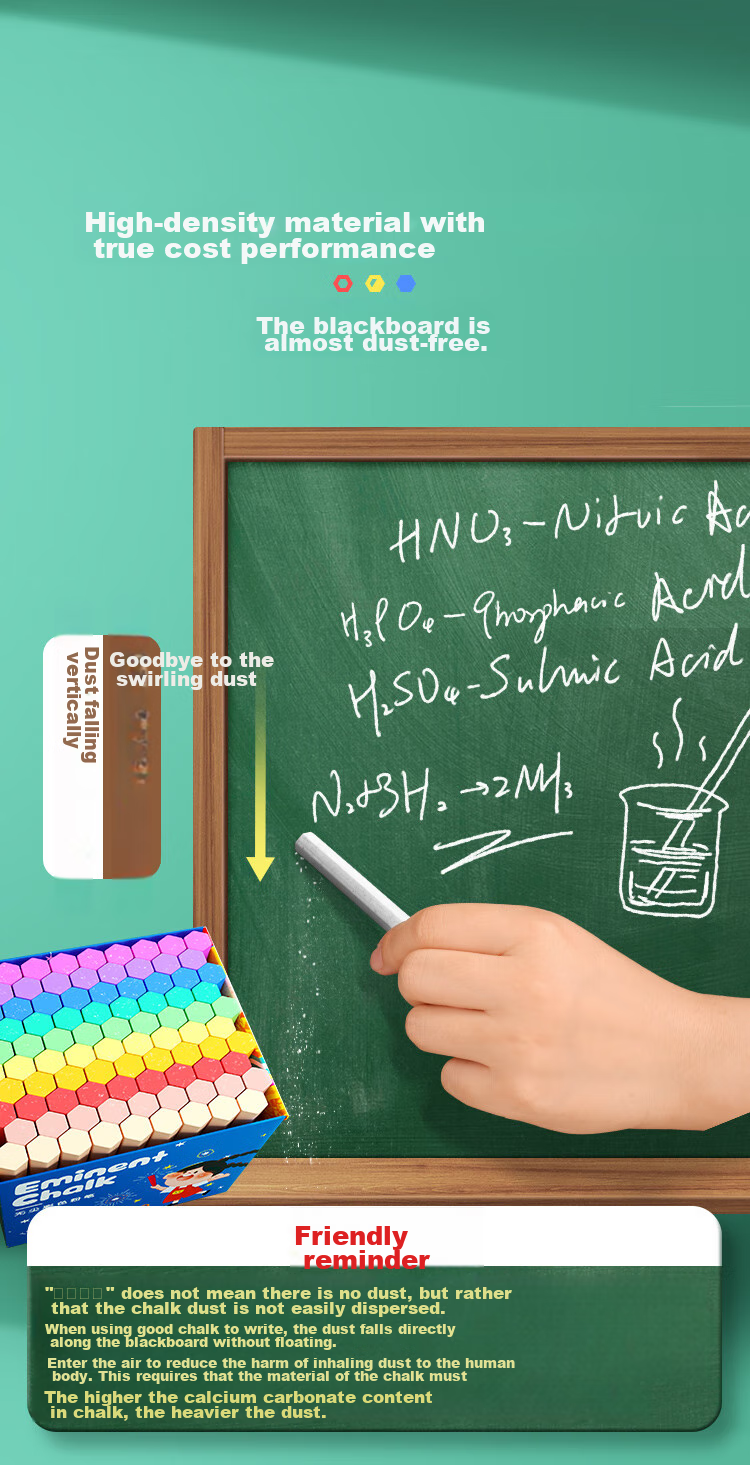 High-density material with
true cost performance
The blackboard is
almost dust-free.
HNO₃-Nitric
H₃PO₄-
Acid
H₂SO₄-
Acid
Goodbye to the
swirling dust
Dust falling
vertically
N₂+3H₂→2NH₃
Eminent
Chalk
Friendly
reminder
"□□□□" does not mean there is no dust, but rather
that the chalk dust is not easily dispersed.
When using good chalk to write, the dust falls directly
along the blackboard without floating.
Enter the air to reduce the harm of inhaling dust to the human
body. This requires that the material of the chalk must
The higher the calcium carbonate content
in chalk, the heavier the dust.